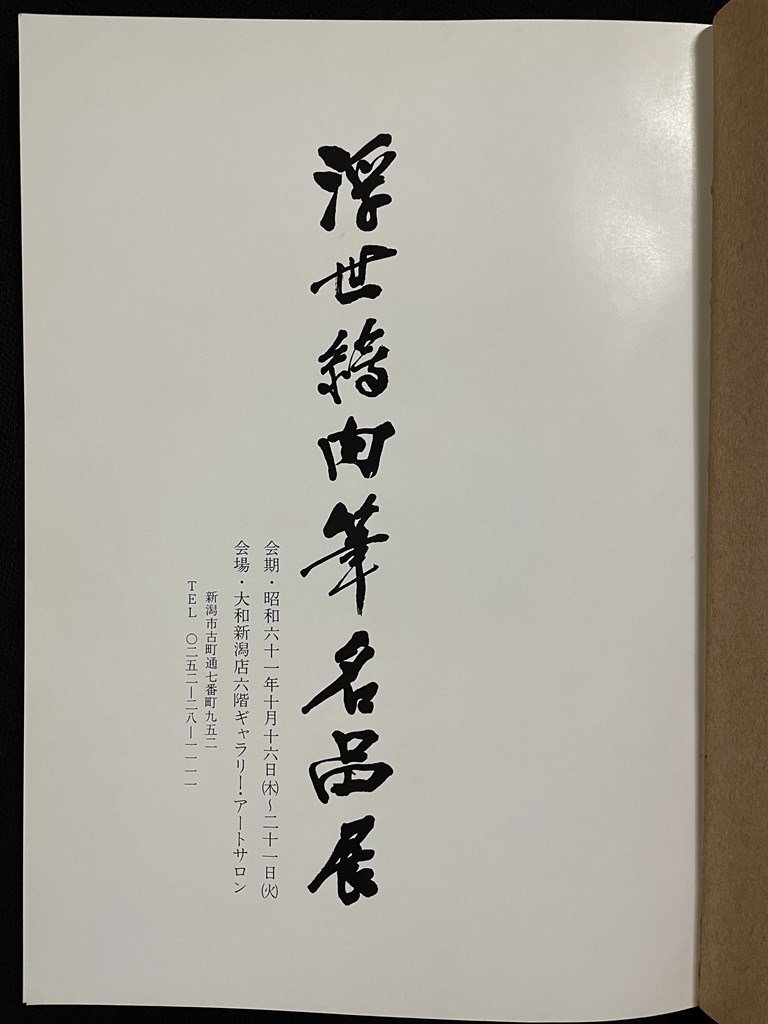 浮世繪肉筆名品展
会期・昭和六十一年十月十六日㈭〜二十一日㈫
会場・大和新潟店六階ギャラリー・アートサロン
新潟市古町通七番町九五二
TEL 〇二五二―二八―一一一一